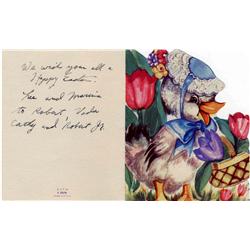 We wish you all a
Happy Easter.
Lee and Marcia
to Robert, Vida
Cathy and Robert Jr.